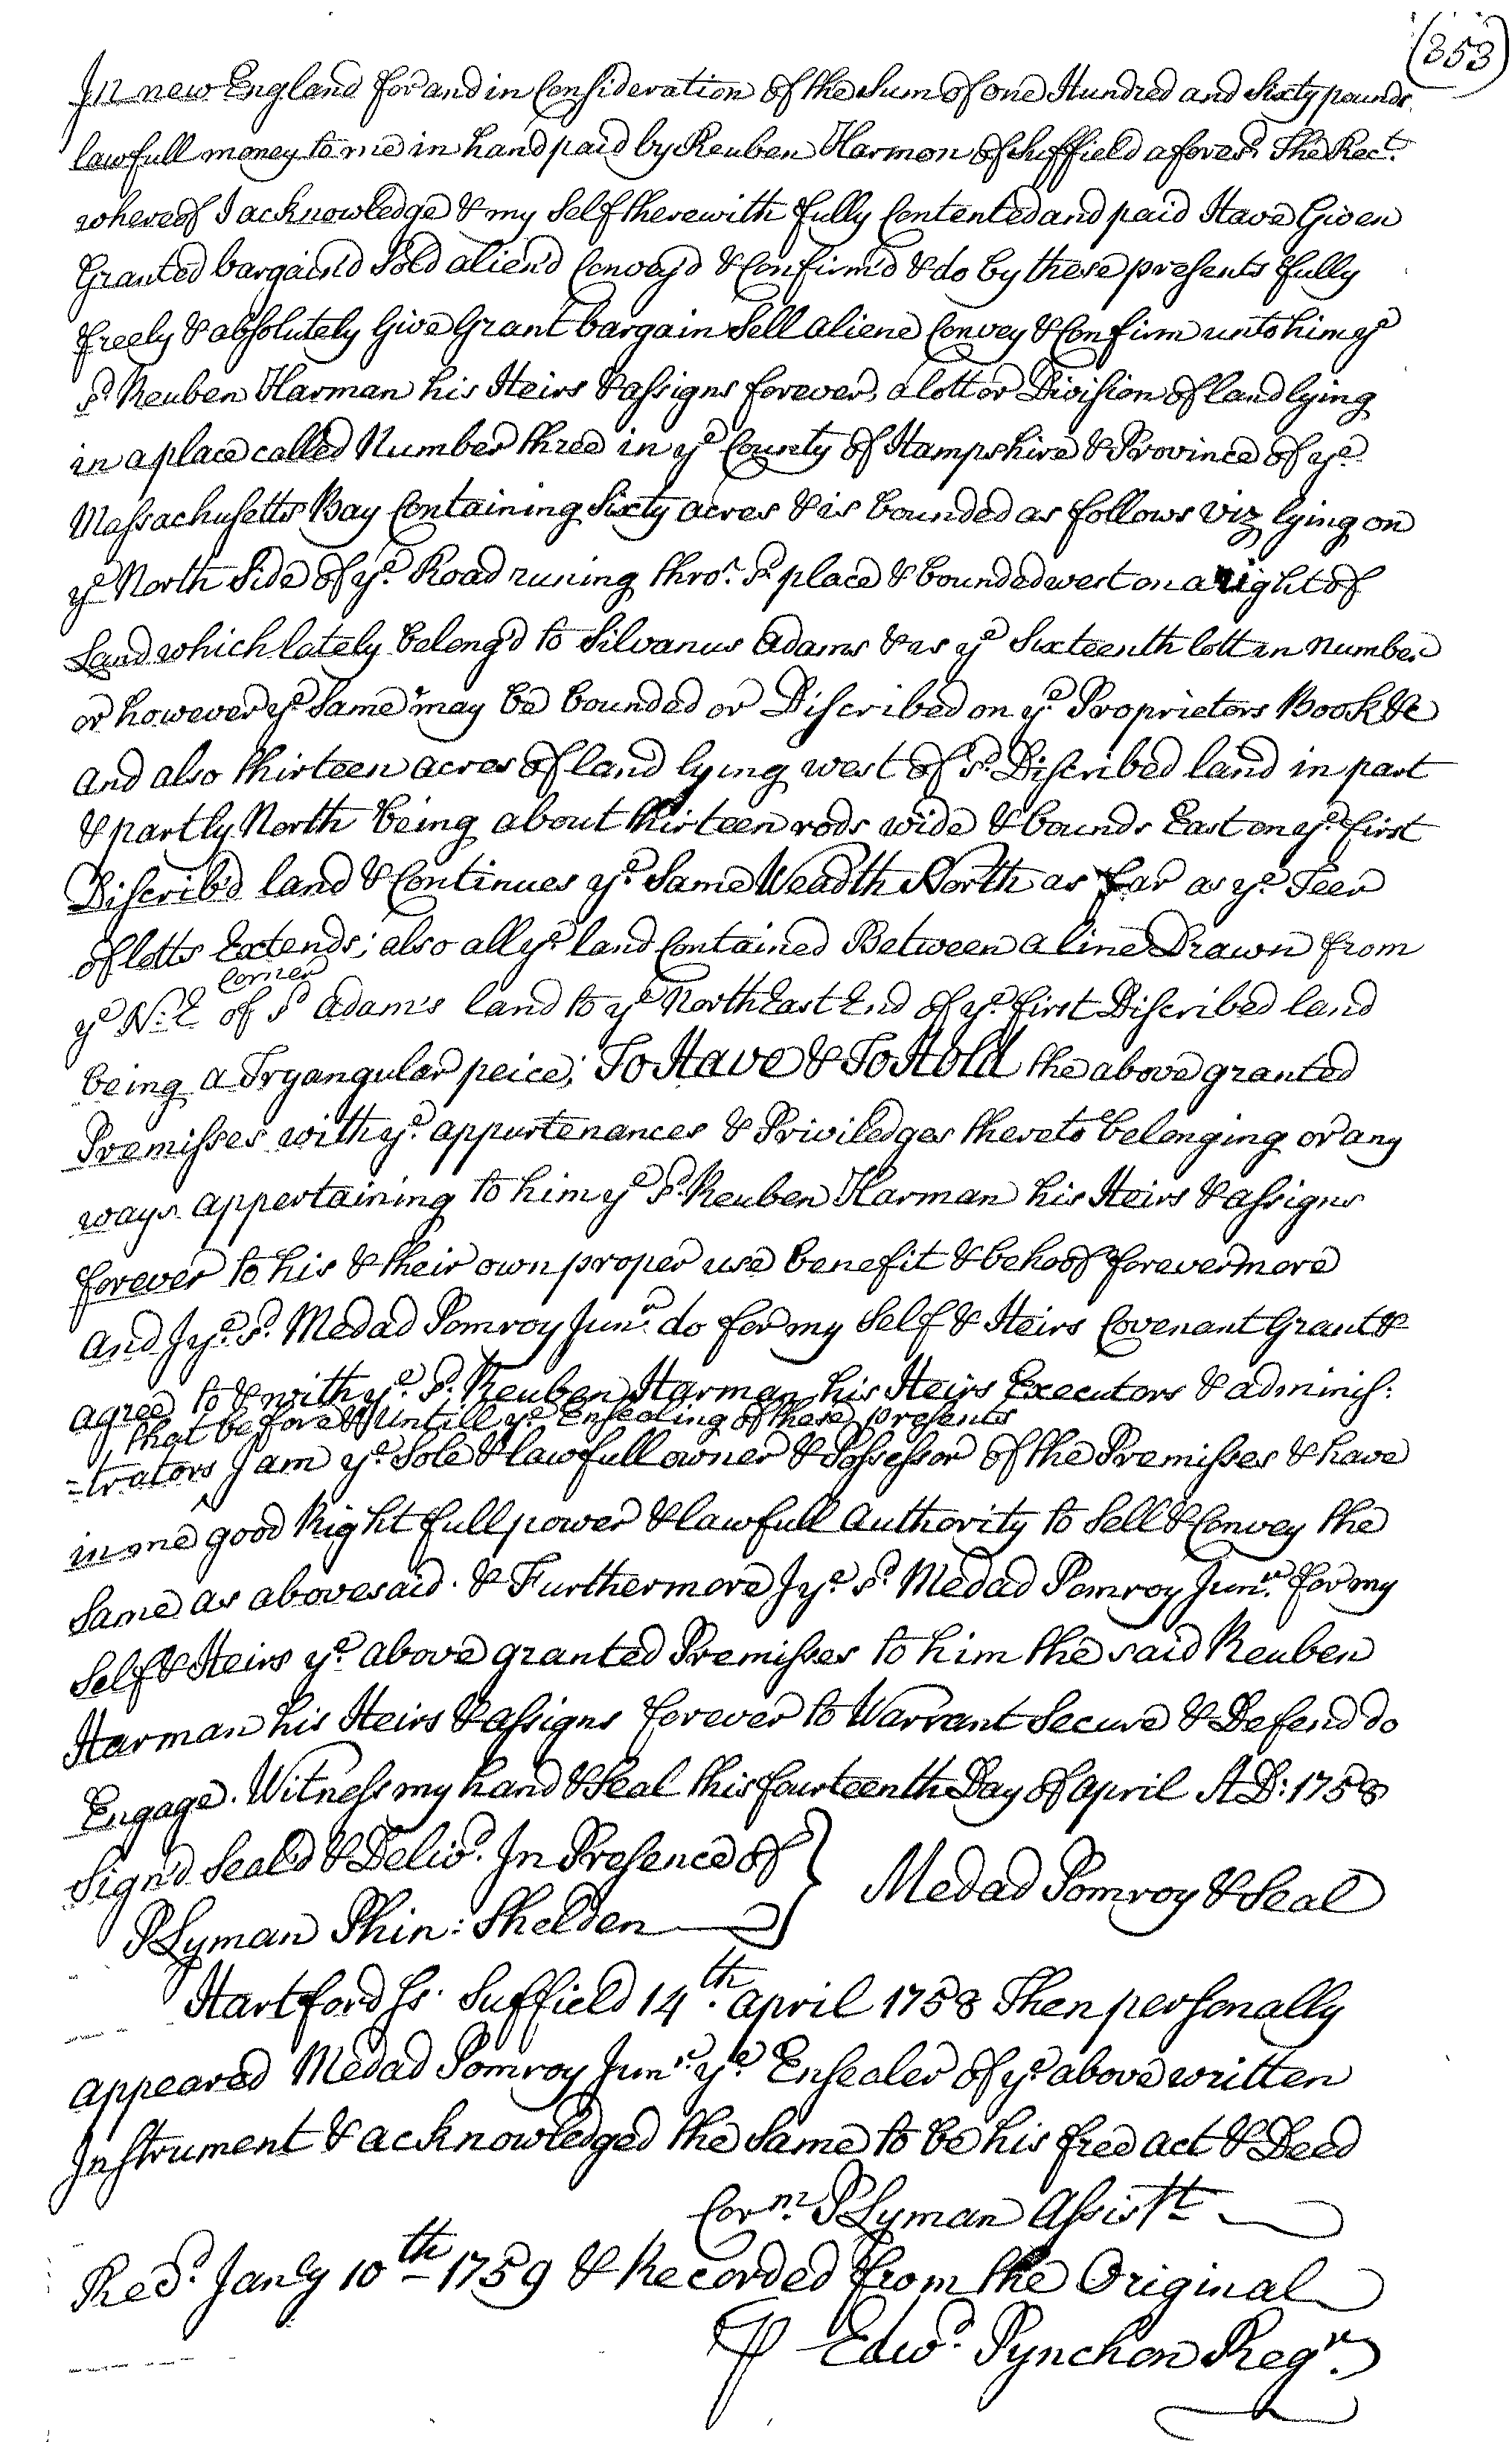 (353)
In new England for and in Consideration of the Sum of one Hundred and Sixty pounds
lawfull money to me in hand paid by Reuben Harmon of Suffield aforesd. The Rect.
whereof I acknowledge & my Self therewith fully Contented and paid Have Given
Granted bargain'd Sold alien'd Convey'd & Confirm'd & do by these presents fully
freely & absolutely Give Grant bargain Sell aliene Convey & Confirm unto him ye
sd. Reuben Harman his Heirs & assigns forever, a lott or Division of land lying
in a place called Number three in ye County of Hampshire & Province of ye
Massachusetts Bay Containing Sixty acres & is bounded as follows viz lying on
ye North Side of ye Road runing thro'. sd. place & bounded west on a right of
Land which lately belong'd to Silvanus Adams & is ye Sixteenth lott in number
or however ye Same may be bounded or Discribed on ye Proprietors Book &c
and also thirteen acres of land lying west of sd. Discribed land in part
& partly North being about thirteen rods wide & bounds East on ye first
Discrib'd land & Continues ye Same Weadth North as far as ye Teer
of lotts Extends; also all ye land Contained Between a line Drawn from
ye N: E corner of sd Adam's land to ye North East End of ye first Discribed land
being a Tryangular peice; To Have & To Hold the above granted
Premisses with ye appurtenances & Priviledges thereto belonging or any
ways appertaining to him ye sd. Reuben Harman his Heirs & assigns
forever to his & their own proper use benefit & behoof forevermore
And I ye sd. Medad Pomroy Junr. do for my Self & Heirs Covenant Grant &
agree to & with ye sd. Reuben Harman his Heirs Executors & adminis:
that before & untill ye Ensealing of these presents
=trators I am ye Sole & lawfull owner & Possessor of the Premisses & have
in me good Right full power & lawfull authority to Sell & Convey the
Same as abovesaid. & Furthermore I ye sd. Medad Pomroy Junr. for my
Self & Heirs ye above granted Premisses to him the said Reuben
Harman his Heirs & assigns forever to Warrant Secure & Defend do
Engage. Witness my hand & Seal this fourteenth Day of April A D: 1758
Sign'd Seal'd & Delivd. In Presence of } Medad Pomroy & Seal
P Lyman Phin: Shelden
Hartford Ss. Suffield 14th. April 1758 Then personally
appeared Medad Pomroy Junr. ye Ensealer of ye above written
Instrument & acknowledged the Same to be his free act & Deed
Corm. P Lyman Assistt
Recd. Janry 10th 1759 & Recorded from the Original
P Edwd. Pynchon Regr.